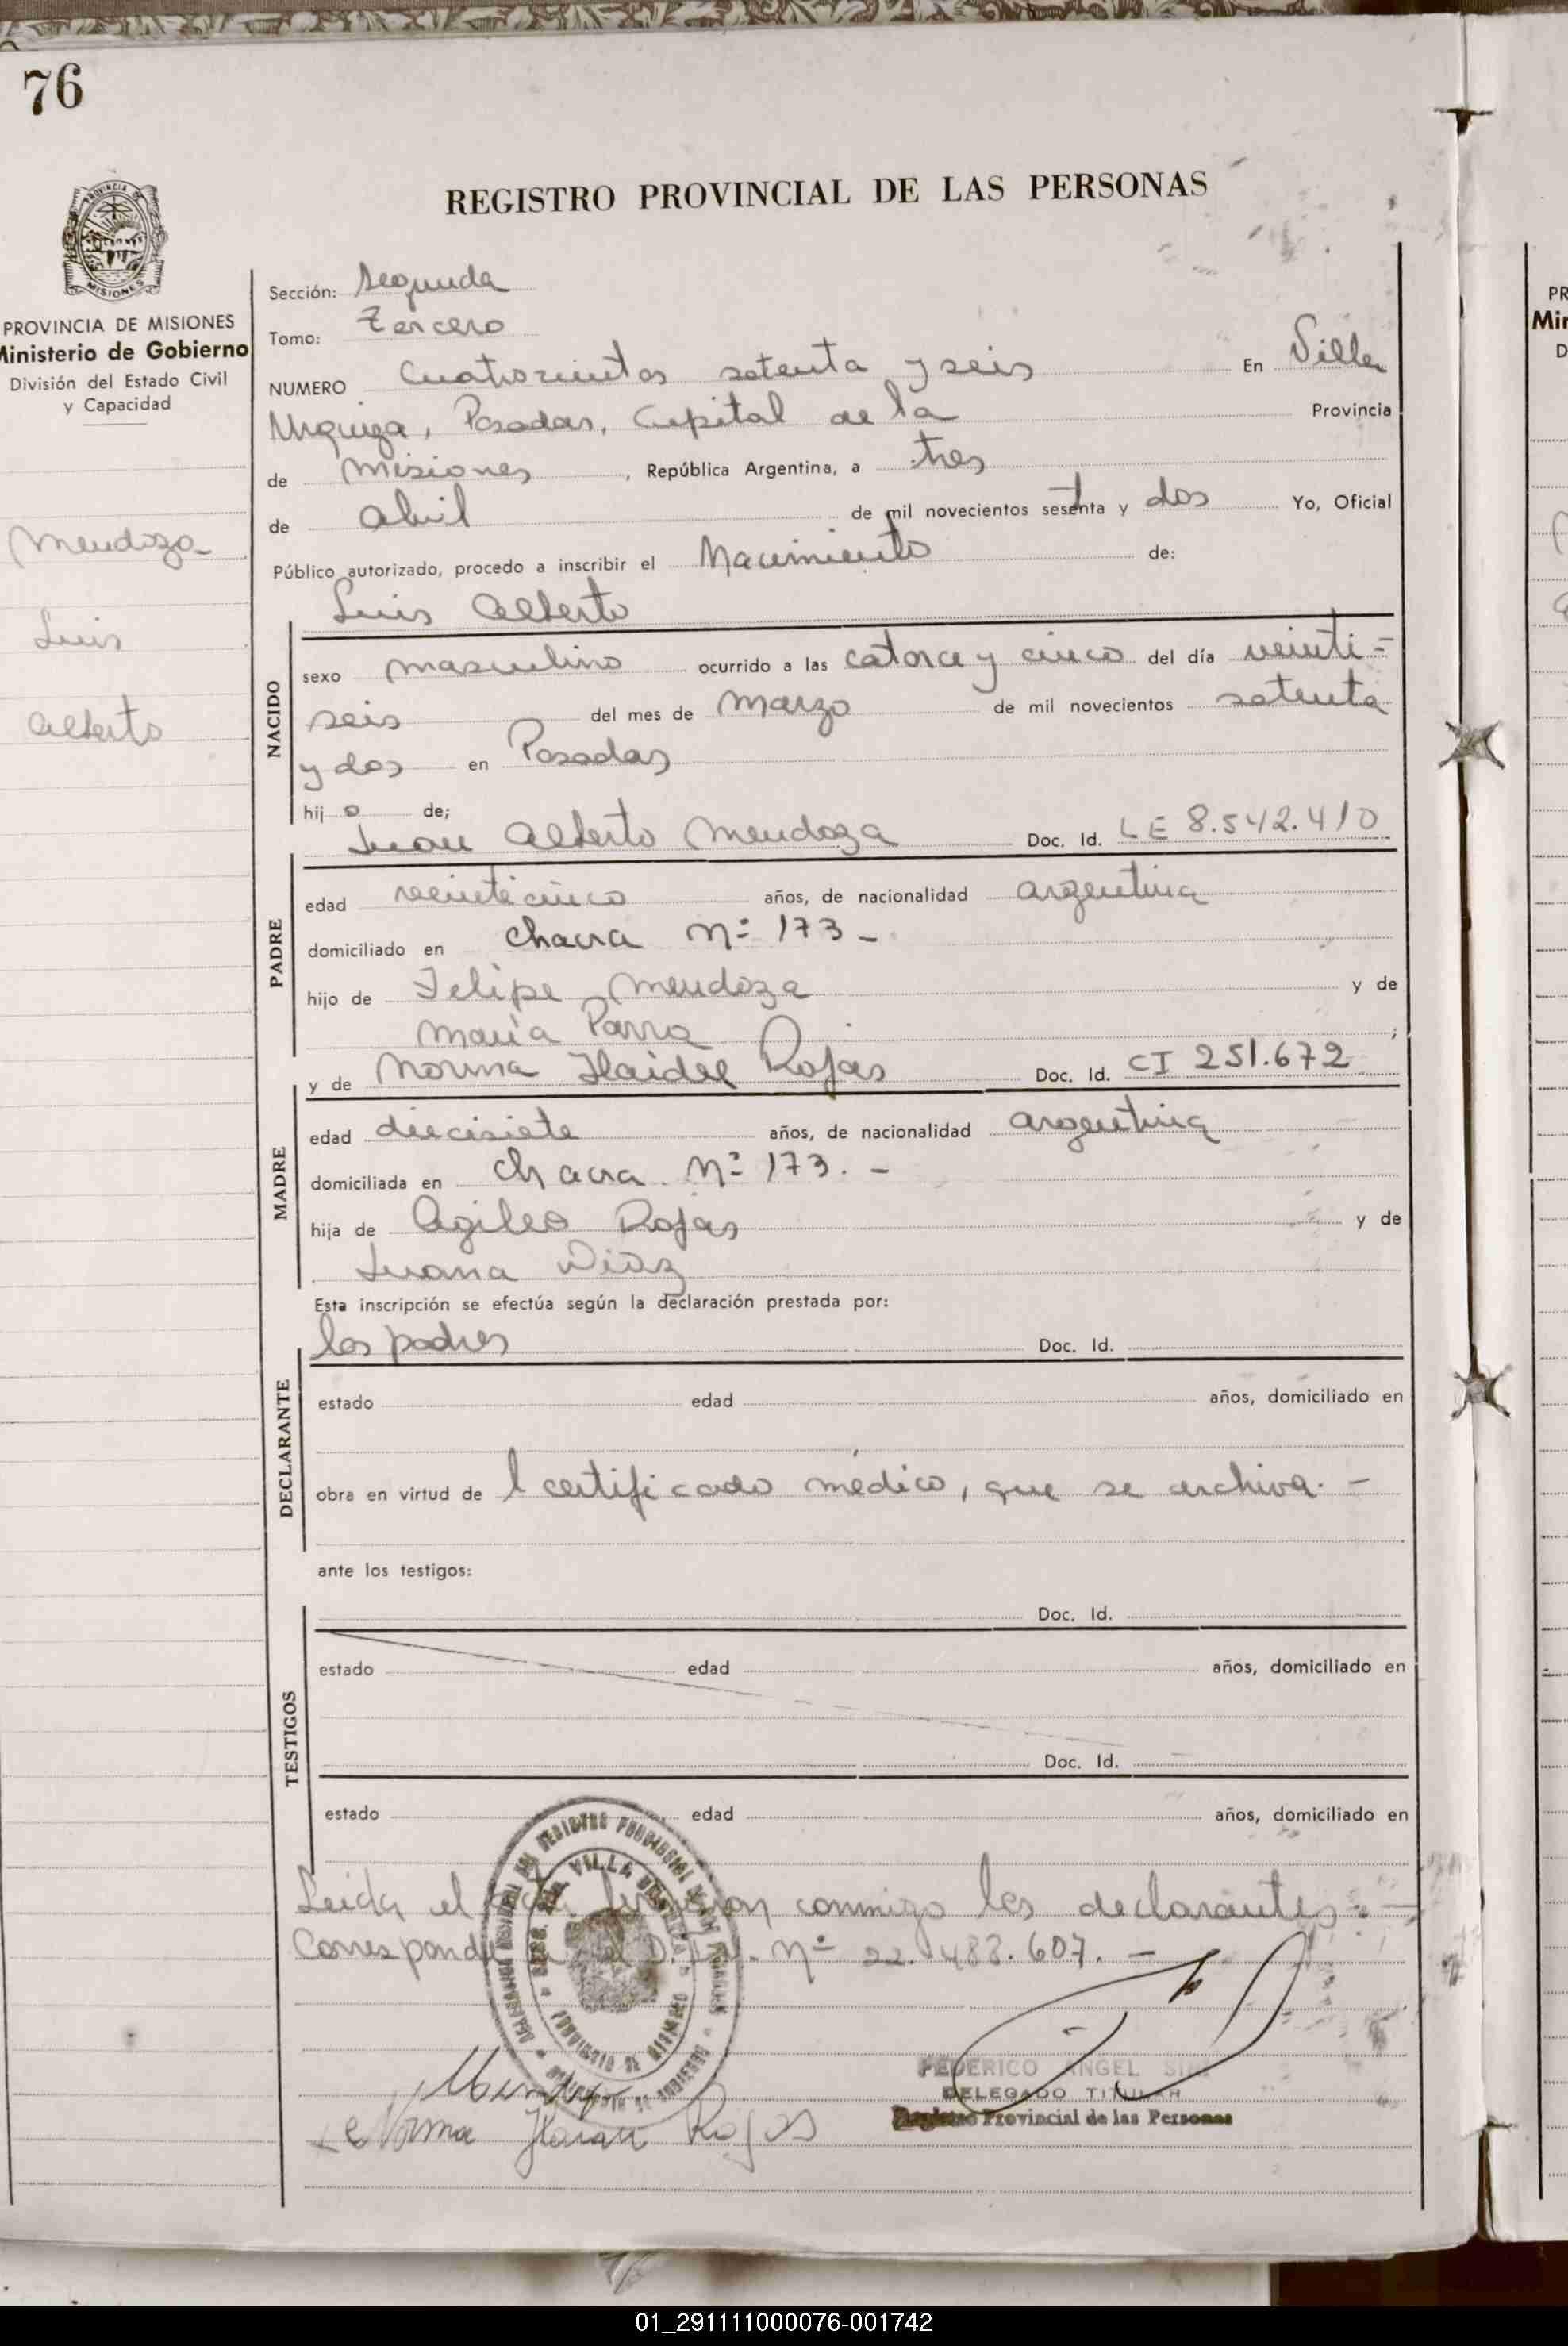 76
REGISTRO PROVINCIAL DE LAS PERSONAS
PROVINCIA DE MISIONES
Ministerio de Gobierno
División del Estado Civil
y Capacidad
Mendoza
Luis
Alberto
Sección: Segunda
Tomo: Tercero
NUMERO Cuatrocientos setenta y seis En Villa
Urquiza, Posadas, Capital de la Provincia
de Misiones, República Argentina, a tres
de abril de mil novecientos setenta y dos Yo, Oficial
Público autorizado, procedo a inscribir el Nacimiento de:
Luis Alberto
NACIDO
sexo masculino ocurrido a las catorce y cinco del día veinti=
seis del mes de Marzo de mil novecientos setenta
y dos en Posadas
hij o de;
Juan Alberto Mendoza Doc. Id. LE 8.542.410
PADRE
edad veinticinco años, de nacionalidad argentina
domiciliado en chacra Nº 173 -
hijo de Felipe Mendoza y de
María Parra ;
y de Norma Haidee Rojas Doc. Id. CI 251.672
MADRE
edad diecisiete años, de nacionalidad argentina
domiciliada en chacra Nº 173. -
hija de Agileo Rojas y de
Juana Diaz
Esta inscripción se efectúa según la declaración prestada por:
los padres Doc. Id.
DECLARANTE
estado edad años, domiciliado en
obra en virtud de l certificado médico, que se archiva. -
ante los testigos:
Doc. Id.
TESTIGOS
estado edad años, domiciliado en
Doc. Id.
estado edad años, domiciliado en
Leida el acta firman conmigo los declarantes. -
Corresponde Nº 22.483.607. -
VILLA URQUIZA
FEDERICO ANGEL
DELEGADO TITULAR
Registro Provincial de las Personas
Norma Rojas
PR
Min
D
01_291111000076-001742